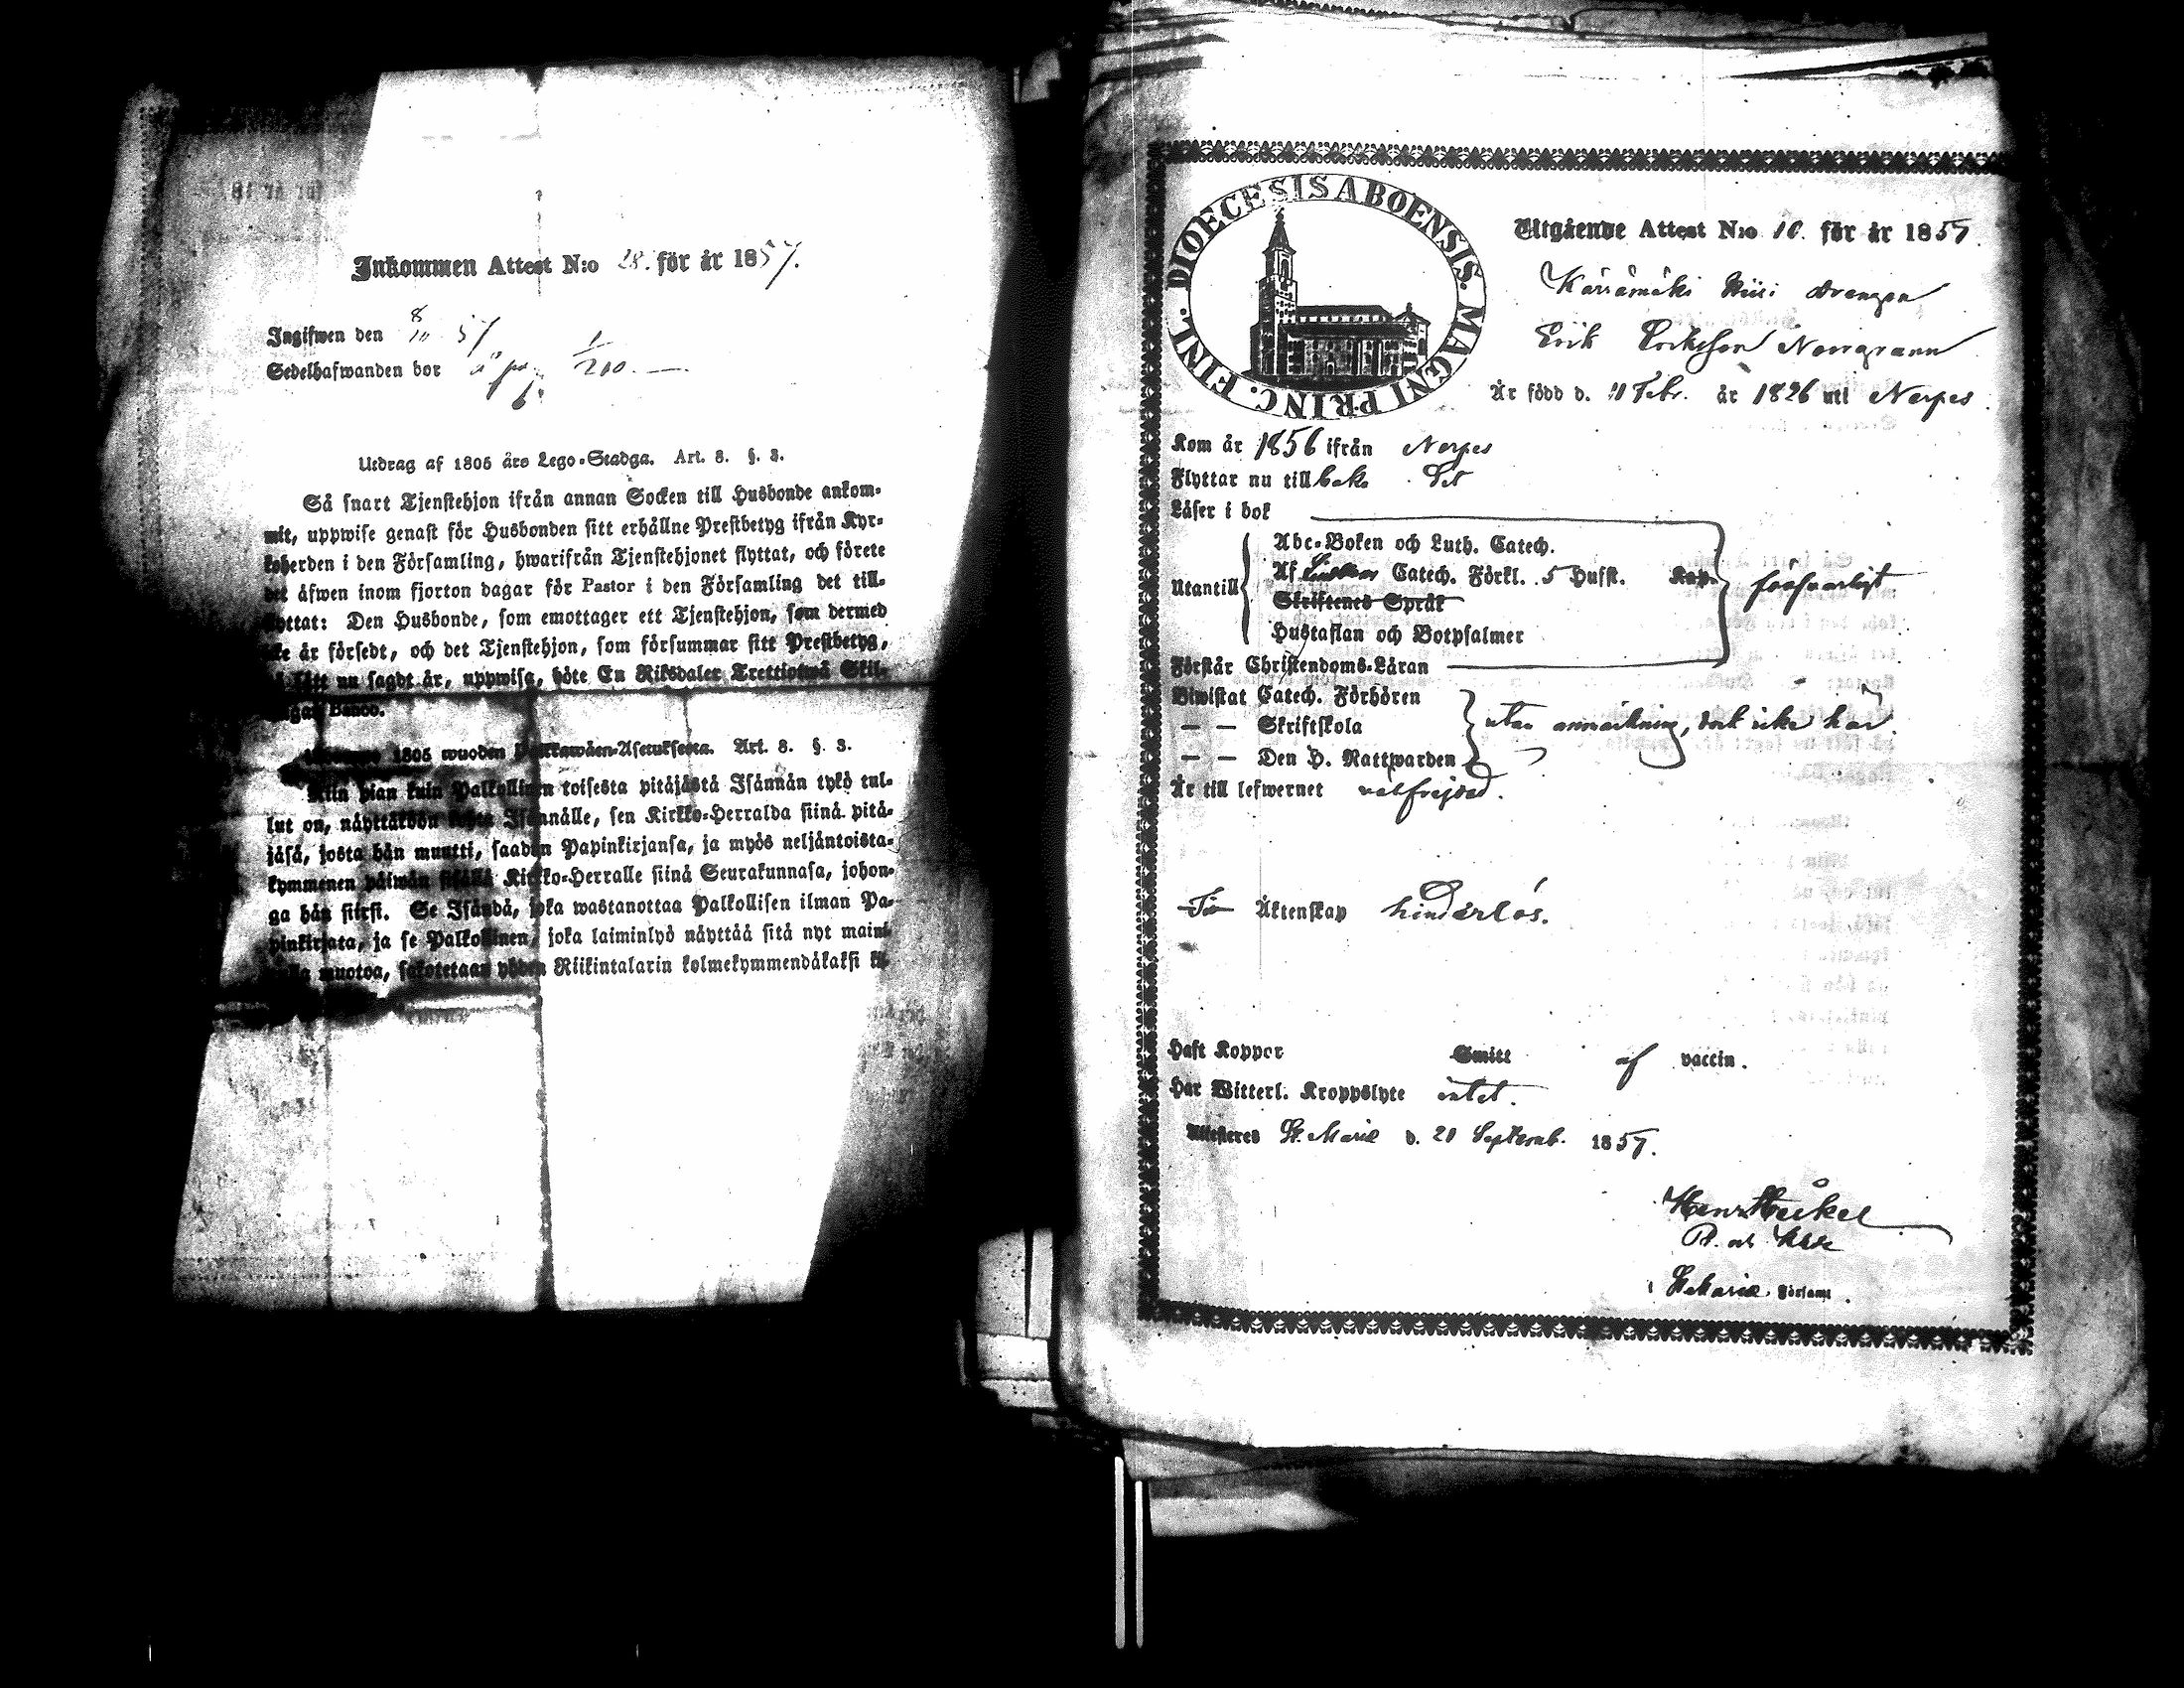 Inkommen Attest N:o 28. för år 1857.
Ingifwen den 8/10 57
Sedelhafwanden bor å pag. 1/210. —
Utdrag af 1805 års Lego-Stadga. Art. 8. §. 3.
Så snart Tjenstehjon ifrån annan Socken till Husbonde ankom-
mit, uppwise genast för Husbonden sitt erhållne Prestbetyg ifrån Kyr-
koherden i den Församling, hwarifrån Tjenstehjonet flyttat, och förete
det åfwen inom fjorton dagar för Pastor i den Församling det till-
flyttat: Den Husbonde, som emottager ett Tjenstehjon, som dermed
icke är försedt, och det Tjenstehjon, som försummar sitt Prestbetyg,
på sätt nu sagdt är, uppwisa, böte En Riksdaler Trettiotwå Skil-
lingar Banco.
1805 wuoden Palkkawäen-Asetuksesta. Art. 8. §. 3.
Niin pian kuin Palkollinen toisesta pitäjästä Isännän tykö tul-
lut on, näyttäköön Isännälle, sen Kirkko-Herralda siinä pitä-
jäsä, josta hän muutti, saadun Papinkirjansa, ja myös neljäntoista-
kymmenen päiwän sisällä Kirkko-Herralle siinä Seurakunnasa, johon-
ga hän siirsi. Se Isändä, joka wastanottaa Palkollisen ilman Pa-
pinkirjata, ja se Palkollinen, joka laiminlyö näyttää sitä nyt maini-
tulla muotoa, sakotetaan yhden Riikintalarin kolmekymmendäkaksi ki-
DIOECESIS ABOENSIS. MAGNI PRINC. FINL.
Utgående Attest N:o 10. för år 1857.
Kärrämäki drengen
Erik Eriksson Norrgrann
Är född d. 11 Febr. år 1826 uti Nerpes.
Kom år 1856 ifrån Nerpes
Flyttar nu tillbaka Dit
Läser i bok
Abc-Boken och Luth. Catech.
Utantill Af Catech. Förkl. 5 Hufst. Kap. försvarligt
Skriftenes Språk
Hustaflan och Botpsalmer
Förstår Christendoms-Läran
Biwistat Catech. Förhören
— — Skriftskola utan anmärkning, dock icke här.
— — Den H. Nattwarden
Är till lefwernet välfrejdad.
Till Äktenskap hinderlös.
Haft Koppor Smitt af vaccin.
Har Witterl. Kroppslyte intet.
Attesteres St. Marie d. 20 Septemb. 1857.
Henr. Heikel
P. och Khde
i St. Marie Församl.